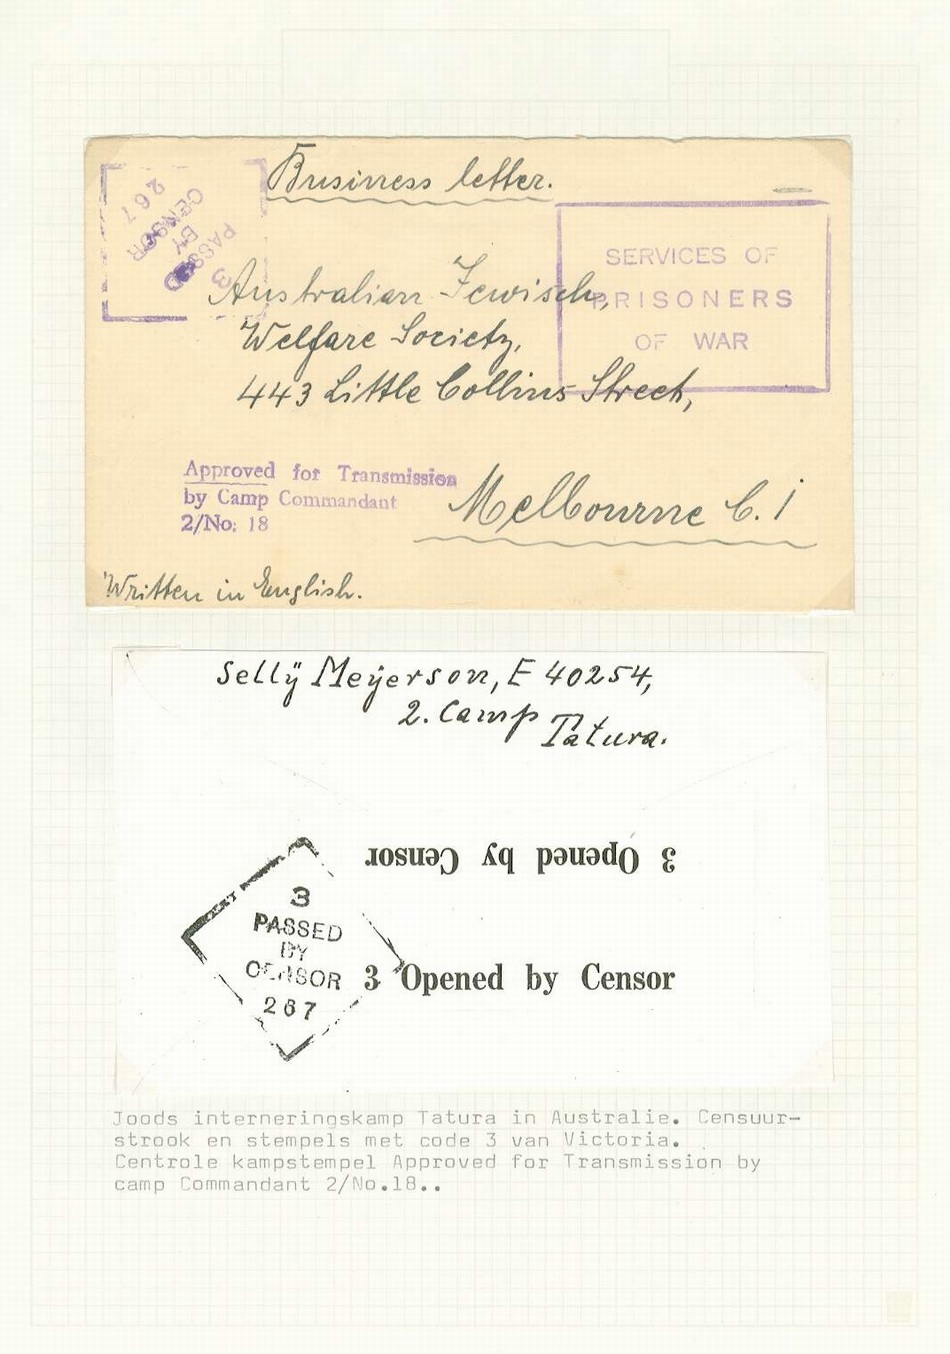 Business letter.
3
PASSED
BY
CENSOR
267
SERVICES OF
PRISONERS
OF WAR
Australian Jewish,
Welfare Society,
443 Little Collins Street,
Approved for Transmission
by Camp Commandant
2/No: 18
Melbourne C. 1
Written in English.
Selly Meyerson, E 40254,
2. Camp
Tatura.
3 Opened by Censor
3
PASSED
BY
CENSOR
267
3 Opened by Censor
Joods interneringskamp Tatura in Australie. Censuur-
strook en stempels met code 3 van Victoria.
Centrole kampstempel Approved for Transmission by
camp Commandant 2/No.18..